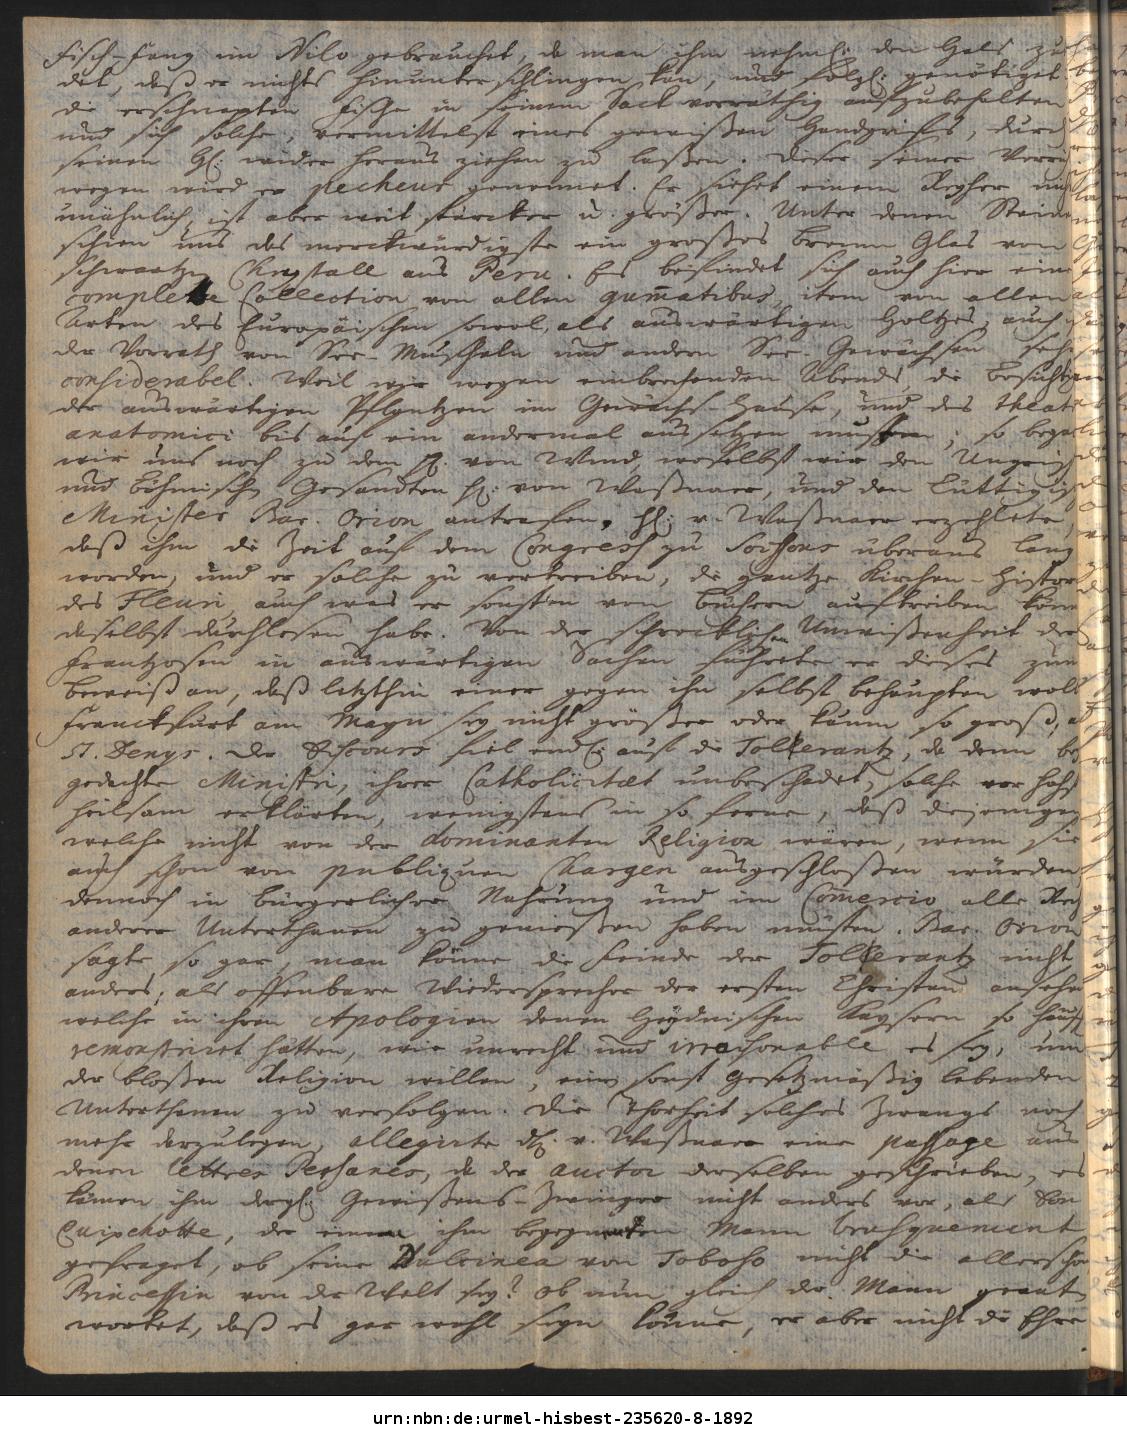 Fisch-Fang im Nilo gebrauchet, da man ihm nehml. den Hals zu
det, daß er nichts hinunter schlingen kan, und folgl. genötiget
die erschnapten Fische in seinem Sack vorräthig aufzubehalten
und sich solche, vermittelst eines gewißen Handgrifs, durch
seinen wider heraus ziehen zu laßen. Dieser seiner
wegen wird er pecheur genennet. Er siehet einem Reyher nicht
unähnlich, ist aber weit stärcker u. größer. Unter denen Steinen
schien uns das merckwürdigste ein großes Brenn Glas von
schwartzen Chrystall aus Peru. Es befindet sich auch hier eine
complette Collection von allen gum̄atibus, item von allen
Arten des Europäischen sowol, als auswärtigen Holtzes, auch
der Vorrath von See-Muscheln und andern See-Gewächsen sehr
considerabel. Weil wir wegen einbrechenden Abends, die Besichtigung
der auswärtigen Pflantzen im Gewächs-Hause, und des theatri
anatomici bis auf ein andermal aussetzen musten; so begaben
wir uns noch zu dem H. von Wind, woselbst wir den Ungrisch
und Böhmischen Gesandten H. von Waßnaer, und den Lüttigisch
Minister Bar. Orion antrafen. H. v. Waßnaer erzehlete,
daß ihm die Zeit auf dem Congress zu Soissons überaus lang
worden, und er solche zu vertreiben, die gantze Kirchen-Histor
des Fleuri, auch was er sonsten von Büchern auftreiben könn
daselbst durchlesen habe. Von der schrecklichen Unwißenheit der
Frantzosen in auswärtigen Sachen führete er dieses zum
Beweiß an, daß letzthin einer gegen ihn selbst behaupten woll
Franckfurt am Mayn sey nicht größer oder kaum so groß, als
St. Denys. Der Discours fiel endl. auf die Tollerantz, da denn be
gedachte Ministri, ihrer Catholicitæt unbeschadet, solche vor höchst
heilsam erklärten, wenigstens in so ferne, daß diejenigen
welche nicht von der dominanten Religion wären, wenn sie
auch schon von publiquen Chargen ausgeschloßen würden,
dennoch in bürgerlicher Nahrung und im Com̄ercio alle Rech
anderer Unterthanen zu genießen haben müsten. Bar. Orion
sagte so gar, man könne die Feinde der Tollerantz nicht
anders, als offenbare Wiedersprecher der ersten Christen ansehen
welche in ihren Apologien denen Heydnischen Kaysern so häuff
remonstriret hätten, wie unrecht und irraisonable es sey, um
der bloßen Religion willen, einen sonst gesetzmäßig lebenden
Unterthanen zu verfolgen. Die Thorheit solches Zwangs noch
mehr darzulegen, allegirte H. v. Waßnaer eine passage aus
denen lettres Persanes, da der auctor derselben geschrieben, es
kämen ihm dergl. Gewißens-Zwinger nicht anders vor, als Don
Quischotte, der einen ihm begegneten Mann brusquement
gefraget, ob seine Dulcinea von Toboso nicht die allerschön
Princessin von der Welt sey? Ob nun gleich der Mann geant
wortet, daß es gar wohl seyn könne, er aber nicht die Ehre
urn:nbn:de:urmel-hisbest-235620-8-1892